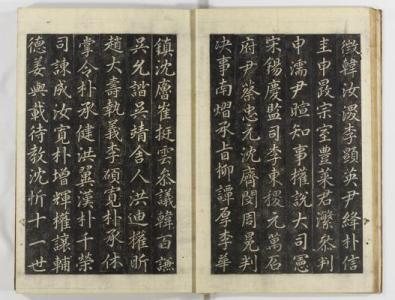 徵韓汝溭李顯英尹絳朴信
圭申最宗室豊萊君瀠參判
申濡尹暄知事權說大司憲
宋楊慶監司李東稷元萬石
府尹蔡忠元沈廥閔周冕判
决事南熠承旨柳譚厚李華
鎮沈膺崔挺雲參議韓百謙
吳允諧吳靖舍人洪迪權昕
趙大壽執義李碩寬朴承休
掌令朴承健洪翼漢朴千榮
司諫成汝寬朴增輝權輔
德姜輿載待教沈忻十一世